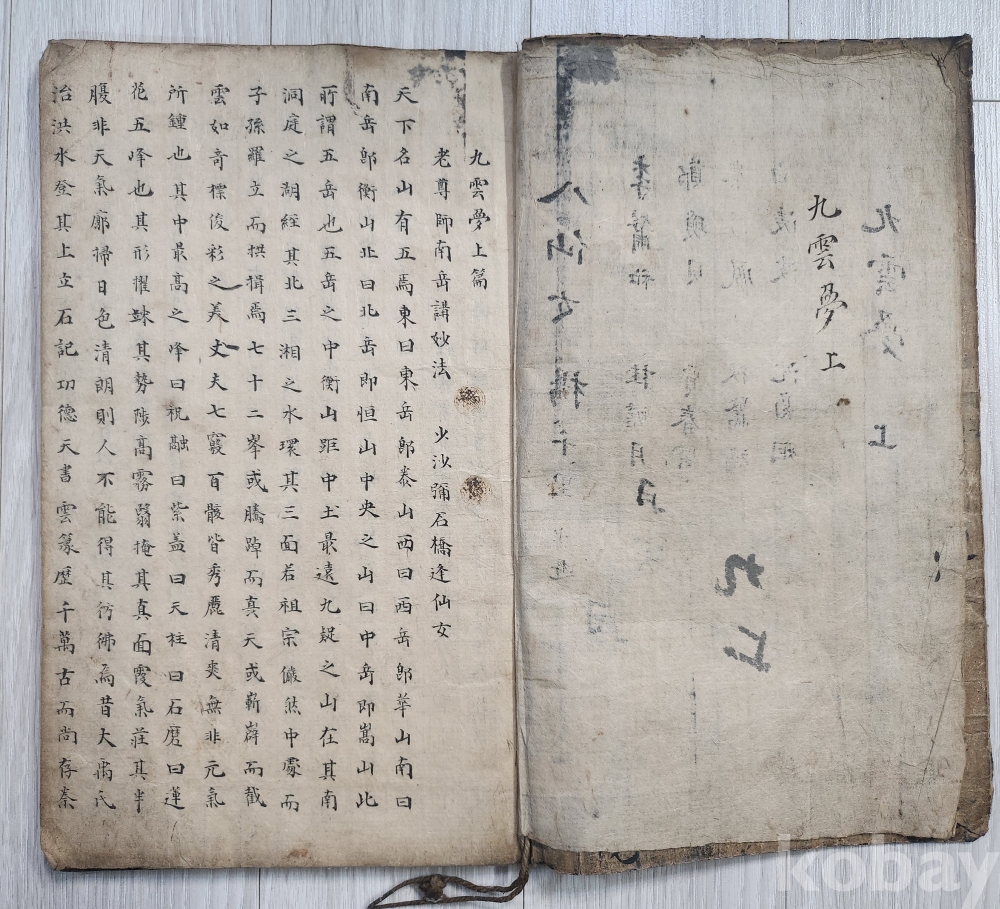 九雲夢 上
九雲夢上篇
老尊師南岳講妙法 少沙彌石橋逢仙女
天下名山有五焉東曰東岳即泰山西曰西岳即華山南曰
南岳即衡山北曰北岳即恒山中央之山曰中岳即嵩山此
所謂五岳也五岳之中衡山距中土最遠九疑之山在其南
洞庭之湖經其北三湘之水環其三面若祖宗儼然中處而
子孫羅立而拱揖焉七十二峯或騰踔而真天或嶄嶭而截
雲如奇標俊彩之美丈夫七竅百骸皆秀麗清爽無非元氣
所鍾也其中最高之峰曰祝融曰紫盖曰天柱曰石廩曰蓮
花五峰也其形擢竦其勢陟高霧翳掩其真面霞氣莊其半
腹非天氣廓掃日色清朗則人不能得其彷彿焉昔大禹氏
治洪水登其上立石記功德天書雲篆歷千萬古而尚存秦
kobay